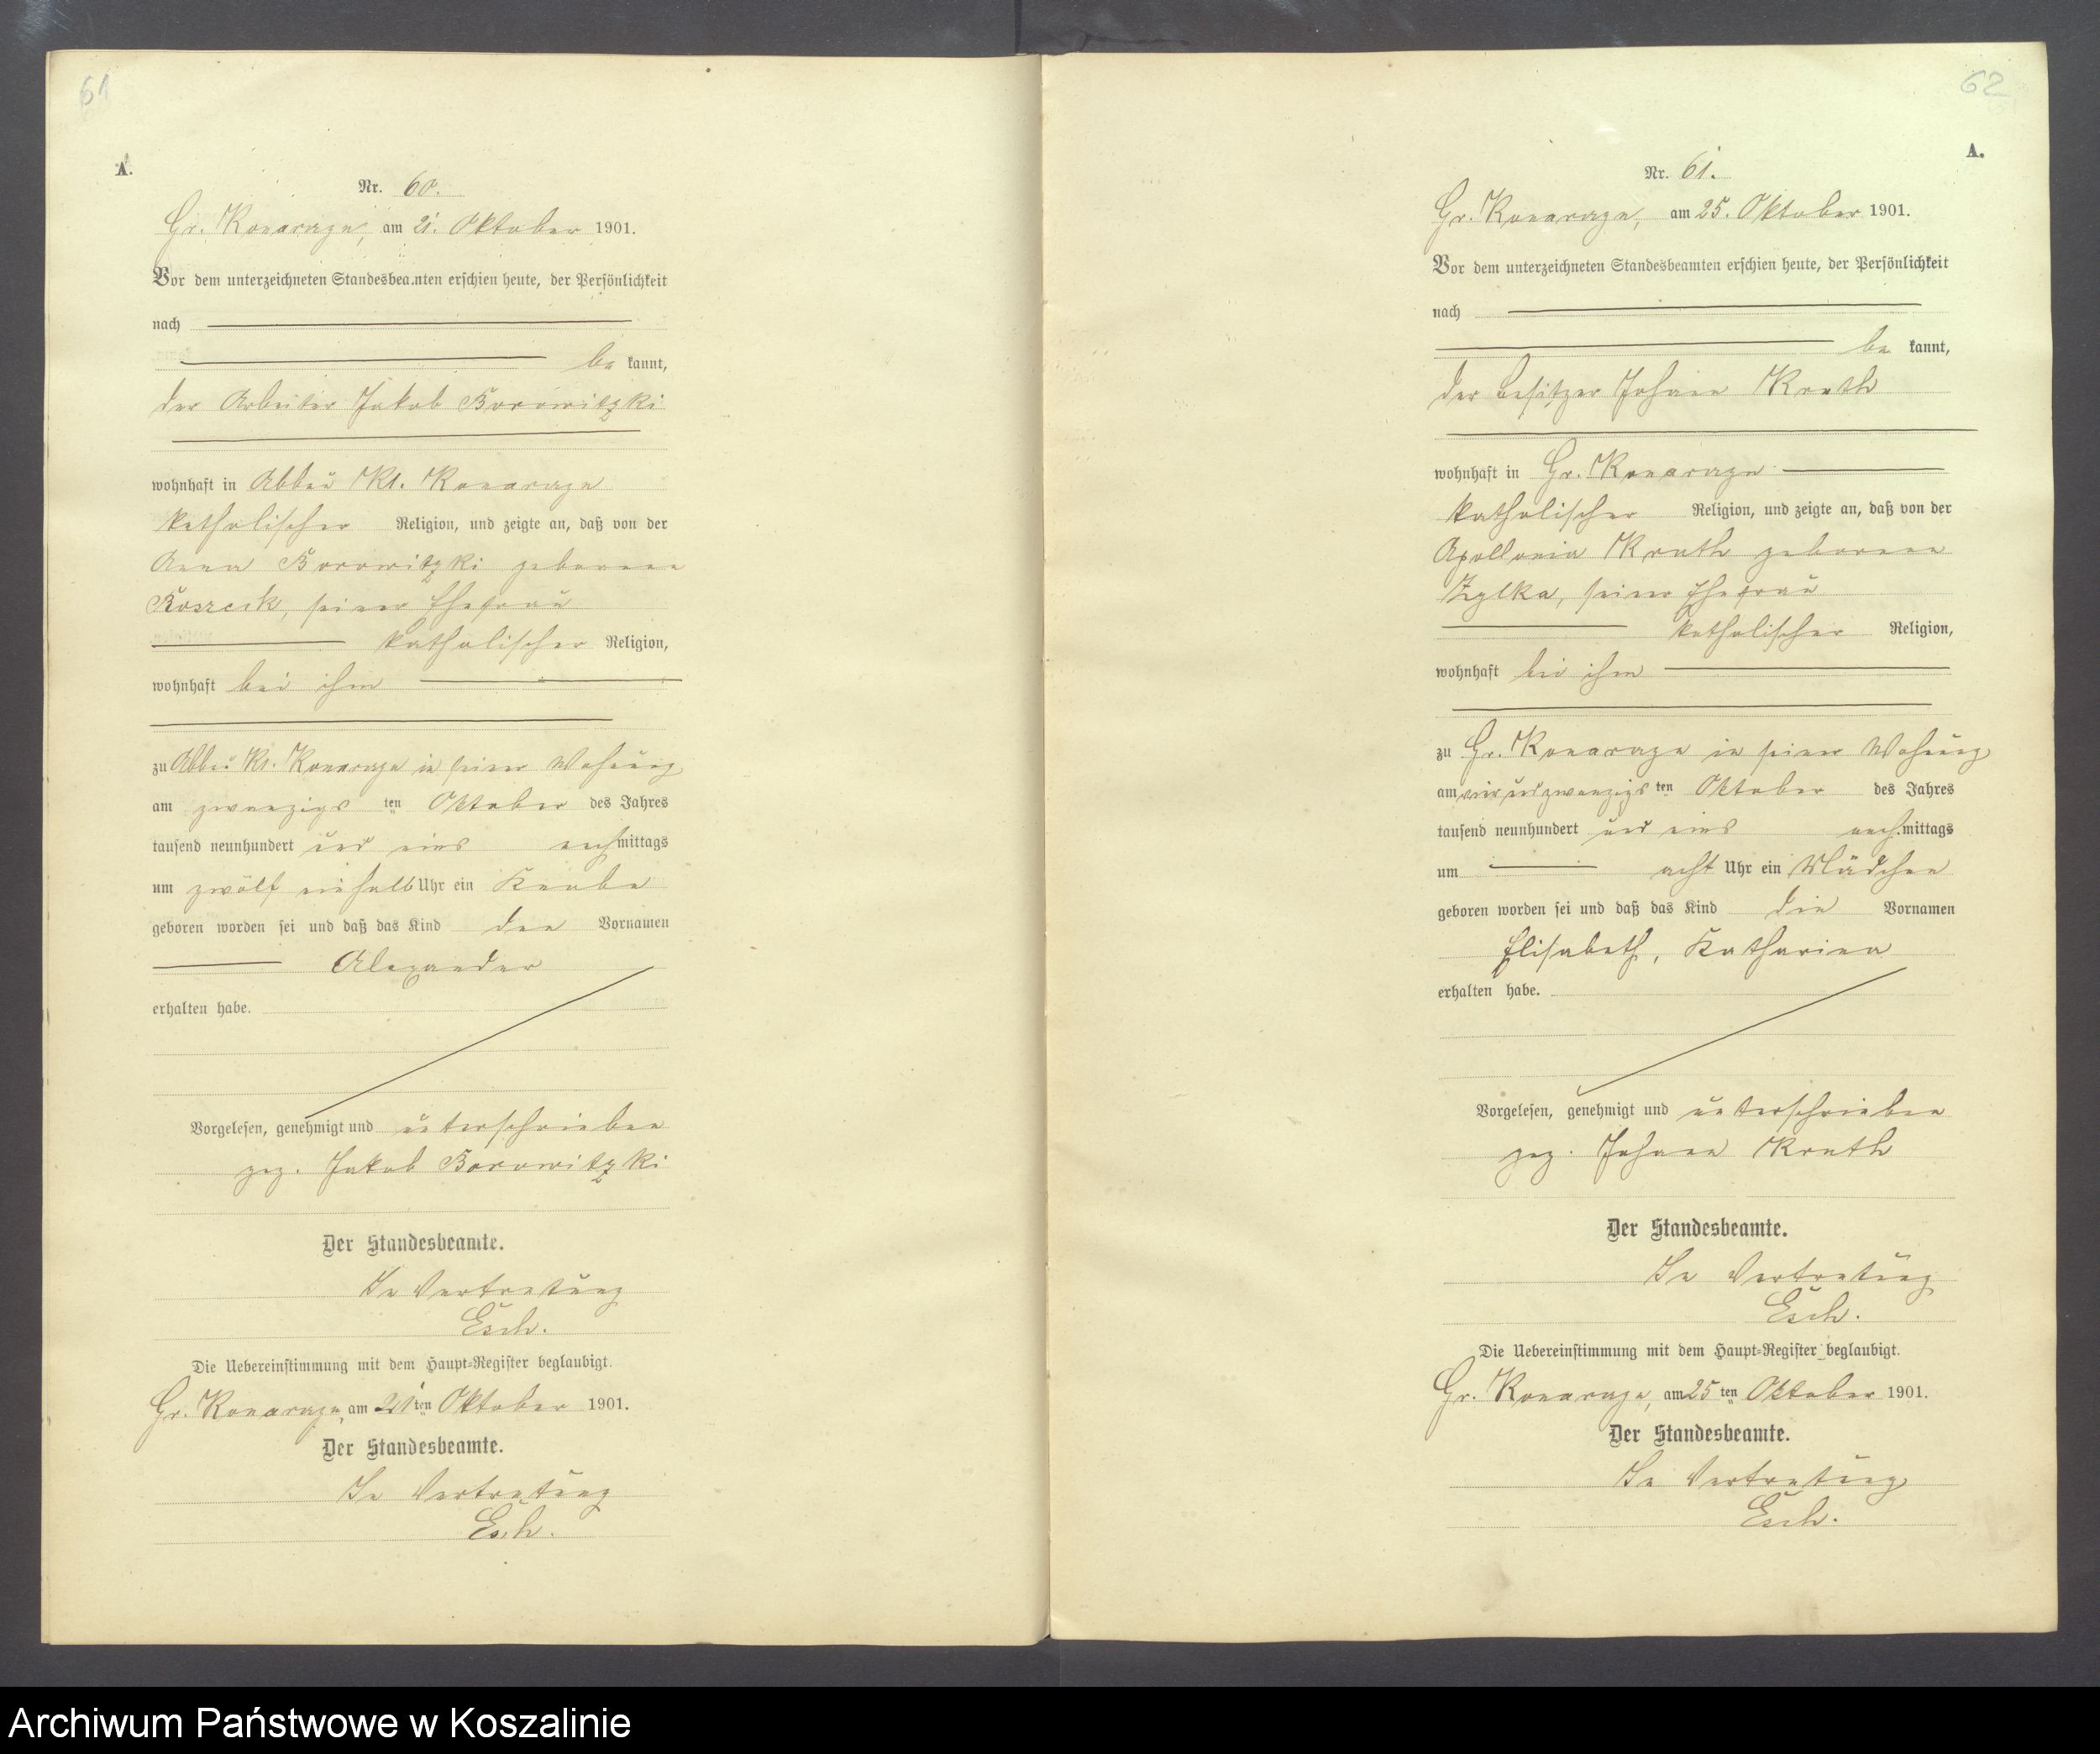 61
A.
Nr. 60.
Gr. Konarczyn, am 21. Oktober 1901.
Vor dem unterzeichneten Standesbeamten erschien heute, der Persönlichkeit
nach
be kannt,
der Arbeiter Jakob Borowitzki
wohnhaft in Abbau Kl. Konarczyn
katholischer Religion, und zeigte an, daß von der
Anna Borowitzki geborene
seiner Ehefrau
katholischer Religion,
wohnhaft bei ihm
zu Abbau Kl. Konarczyn in seiner Wohnung
am zwanzigs ten Oktober des Jahres
tausend neunhundert und eins nachmittags
um zwölf einhalb Uhr ein Knabe
geboren worden sei und daß das Kind den Vornamen
Alexander
erhalten habe.
Vorgelesen, genehmigt und unterschrieben
gez. Jakob Borowitzki
Der Standesbeamte.
In Vertretung
Esch.
Die Uebereinstimmung mit dem Haupt-Register beglaubigt.
Gr. Konarczyn, am 21ten Oktober 1901.
Der Standesbeamte.
In Vertretung
Esch.
62
A.
Nr. 61.
Gr. Konarczyn, am 25. Oktober 1901.
Vor dem unterzeichneten Standesbeamten erschien heute, der Persönlichkeit
nach
be kannt,
der Besitzer Johann Knuth
wohnhaft in Gr. Konarczyn
katholischer Religion, und zeigte an, daß von der
Apollonia Knuth geborene
Zylka, seiner Ehefrau
katholischer Religion,
wohnhaft bei ihm
zu Gr. Konarczyn in seiner Wohnung
am vierundzwanzigs ten Oktober des Jahres
tausend neunhundert und eins nachmittags
um acht Uhr ein Mädchen
geboren worden sei und daß das Kind die Vornamen
Elisabeth, Katharina
erhalten habe.
Vorgelesen, genehmigt und unterschrieben
gez. Johann Knuth
Der Standesbeamte.
In Vertretung
Esch.
Die Uebereinstimmung mit dem Haupt-Register beglaubigt.
Gr. Konarczyn, am 25 ten Oktober 1901.
Der Standesbeamte.
In Vertretung
Esch.
Archiwum Państwowe w Koszalinie